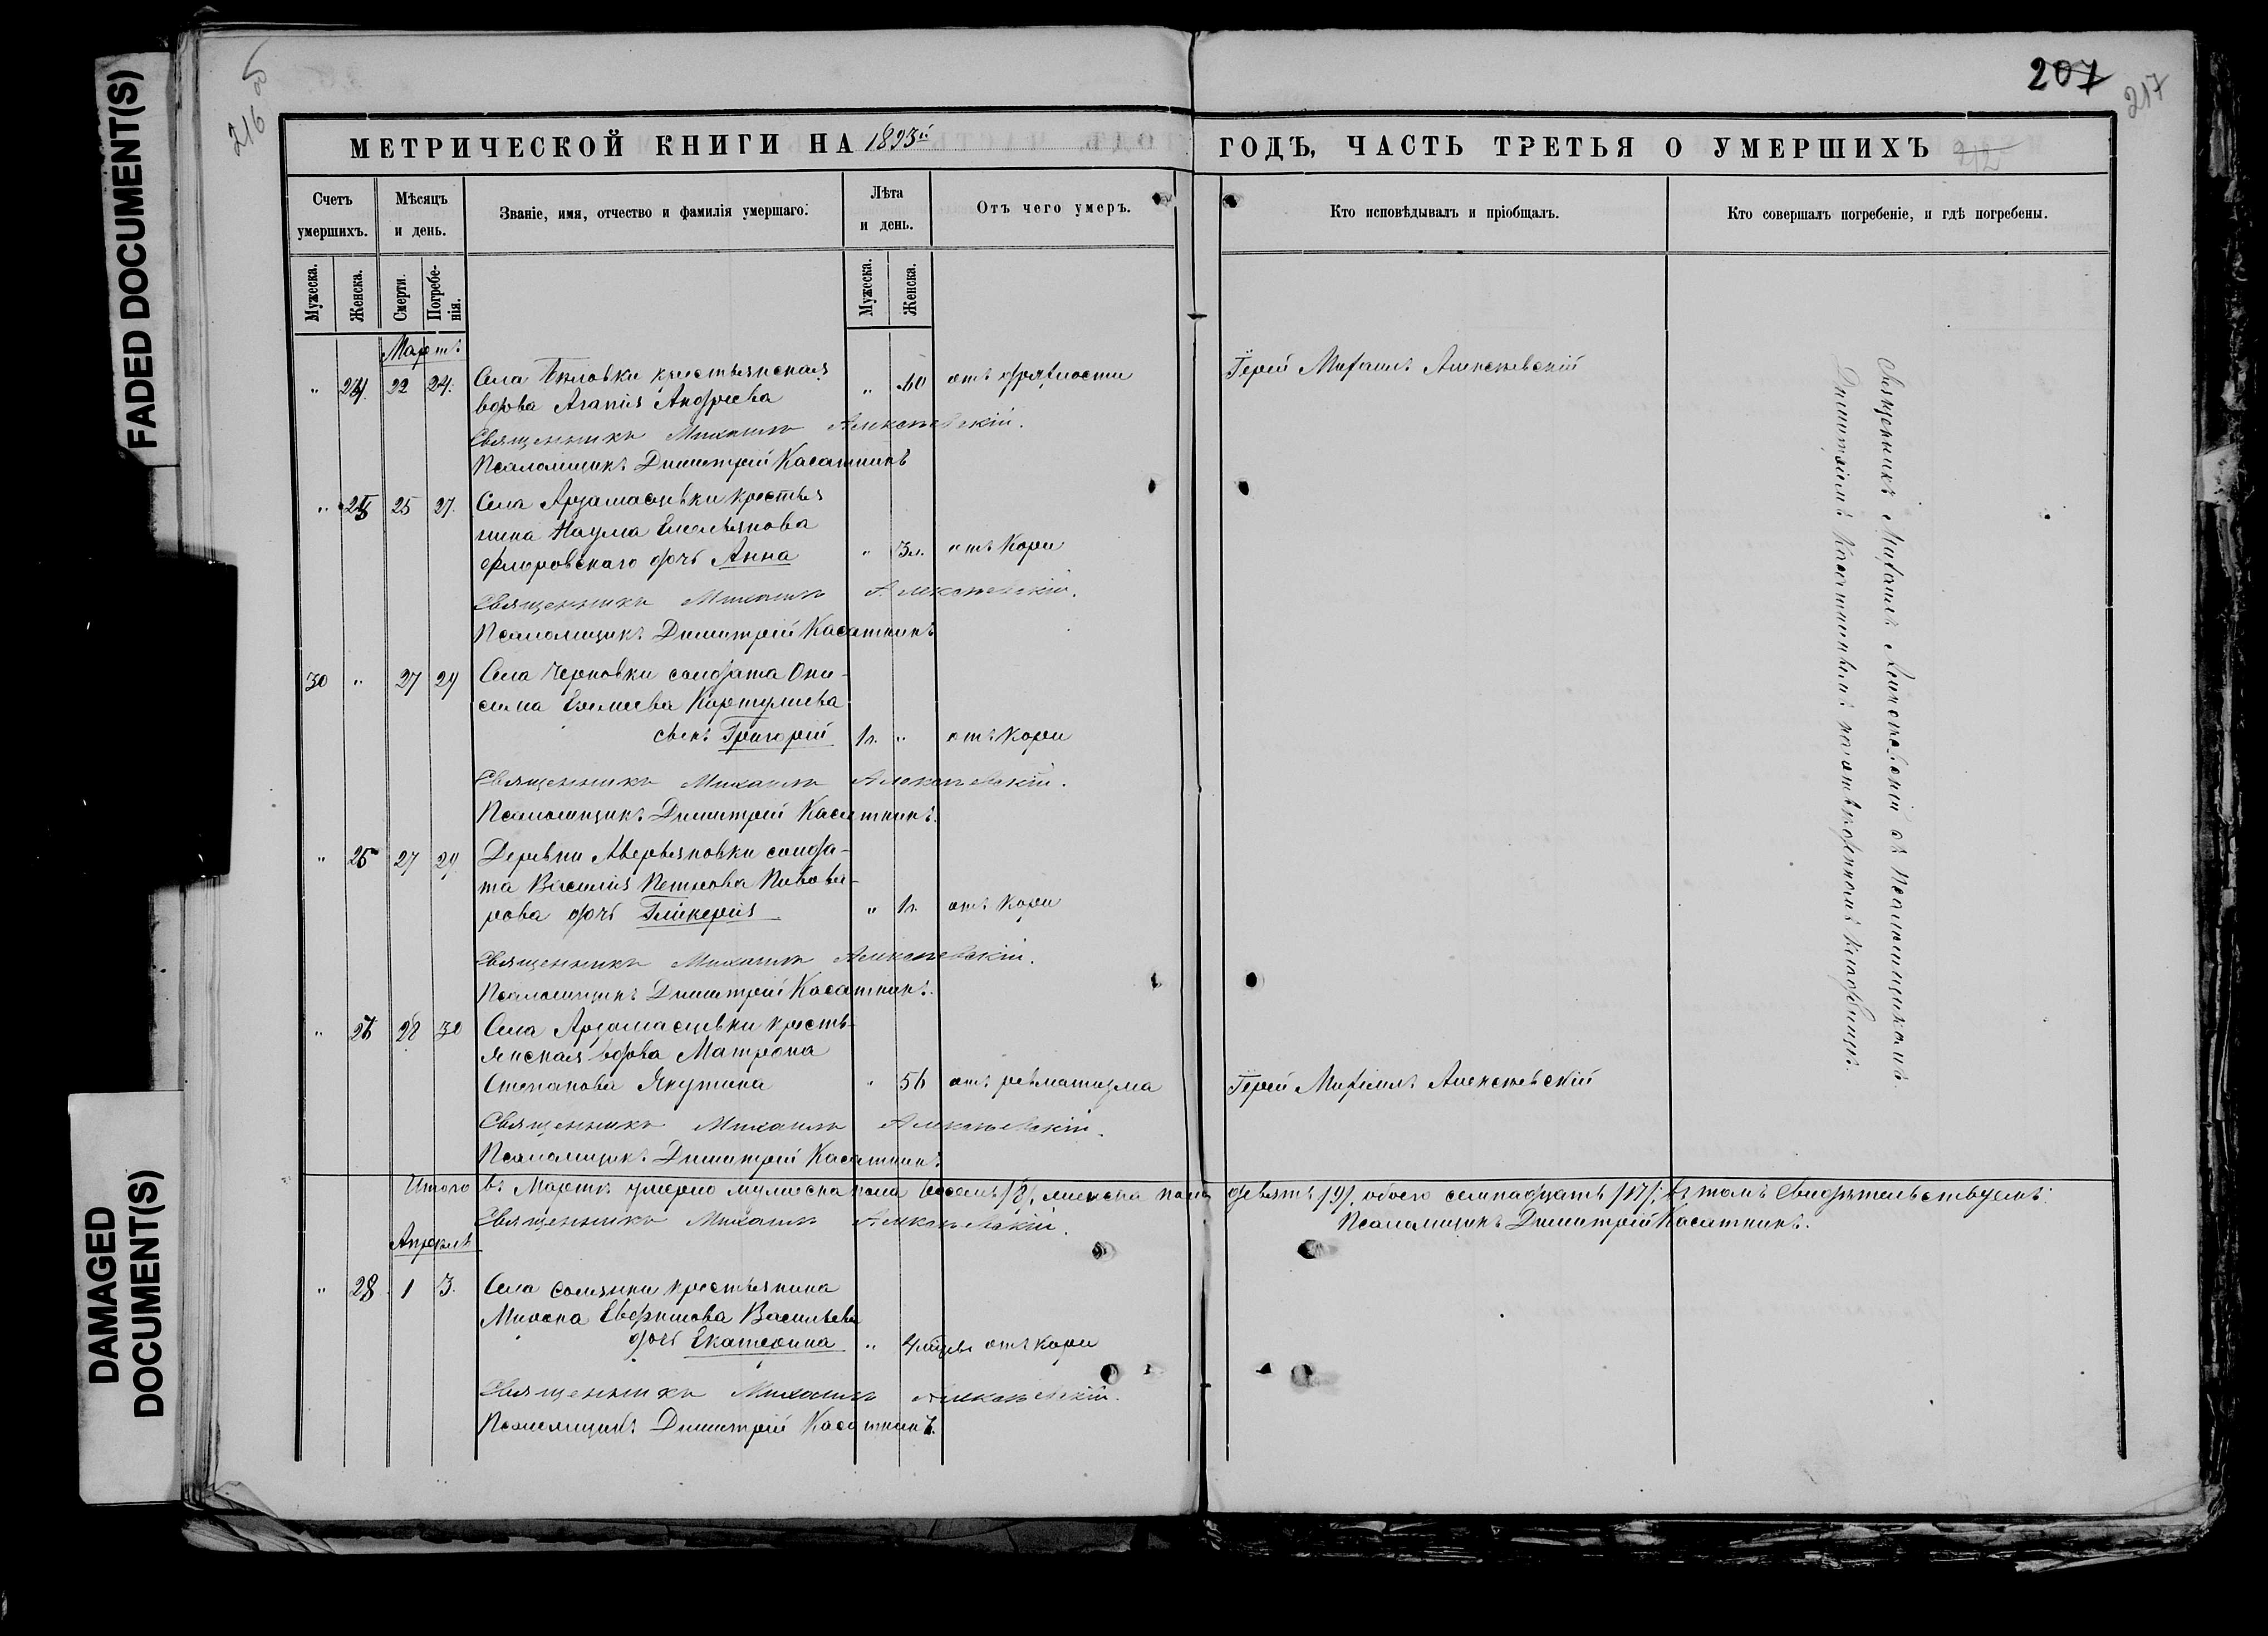 FADED DOCUMENT(S)
DAMAGED DOCUMENT(S)
216
207
217
МЕТРИЧЕСКОЙ КНИГИ НА 1893й ГОДЪ, ЧАСТЬ ТРЕТЬЯ О УМЕРШИХЪ 212
Счетъ умершихъ.
Мѣсяцъ и день.
Званіе, имя, отчество и фамилія умершаго.
Лѣта и день.
Отъ чего умеръ.
Кто исповѣдывалъ и пріобщалъ.
Кто совершалъ погребеніе, и гдѣ погребены.
Мужеска. Женска. Смерти. Погребе-нія. Мужеска. Женска.
Мартъ
" 24. 22 24. Села Бѣловки крестьянская " 60 отъ дряхлости Іерей Михаилъ Алексѣевскій
вдова Агапія Андреева
Священникъ Михаилъ Алексѣевскій.
Псаломщикъ Димитрій Касаткинъ
" 25 25 27. Села Арзамасцевки крестья
нина Наума Емельянова
дочь Анна " 3 л. отъ Кори
Священникъ Михаилъ Алексѣевскій.
Псаломщикъ Димитрій Касаткинъ
30 " 27 29 Села Черновки солдата Они-
сима Елисеева
сынъ Григорій 1 г. " отъ Кори
Священникъ Михаилъ Алексѣевскій.
Псаломщикъ Димитрій Касаткинъ.
" 26 27 29 Деревни Аверьяновки солда-
та Василія Петрова Пивова-
рова дочь Гликерія " 1 г. отъ Кори
Священникъ Михаилъ Алексѣевскій.
Псаломщикъ Димитрій Касаткинъ.
" 27 28 30 Села Арзамасцевки кресть-
янская вдова Матрона
Степанова Якутина " 56 отъ ревматизма Іерей Михаилъ Алексѣевскій
Священникъ Михаилъ Алексѣевскій.
Псаломщикъ Димитрій Касаткинъ.
Священникъ Михаилъ Алексѣевскій съ Псаломщикомъ
Димитріемъ Касаткинымъ на отведенномъ кладбищѣ.
Итого въ Мартѣ умерло мужеска пола восемь /8/, женска пола девять /9/, обоего семнадцать /17/; въ томъ свидѣтельствуемъ:
Священникъ Михаилъ Алексѣевскій.
Псаломщикъ Димитрій Касаткинъ.
Апрѣль
" 28 1 3. Села крестьянина
Васильева
дочь Екатерина " 4 отъ Кори
Священникъ Михаилъ Алексѣевскій.
Псаломщикъ Димитрій Касаткинъ.